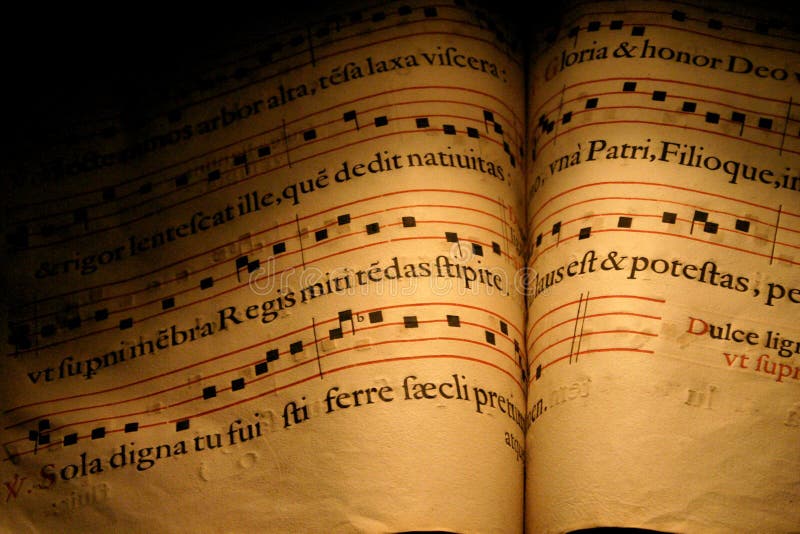 ramos arbor alta, tẽſa laxa viſcera:
& rigor lenteſcat ille, quẽ dedit natiuitas:
vt ſupni mẽbra Regis miti tẽdas ſtipite.
℣. Sola digna tu fui ſti ferre ſæcli
atq
Gloria & honor Deo
vnà Patri, Filioque, in
laus eſt & poteſtas, pe
Dulce lign
vt ſupr